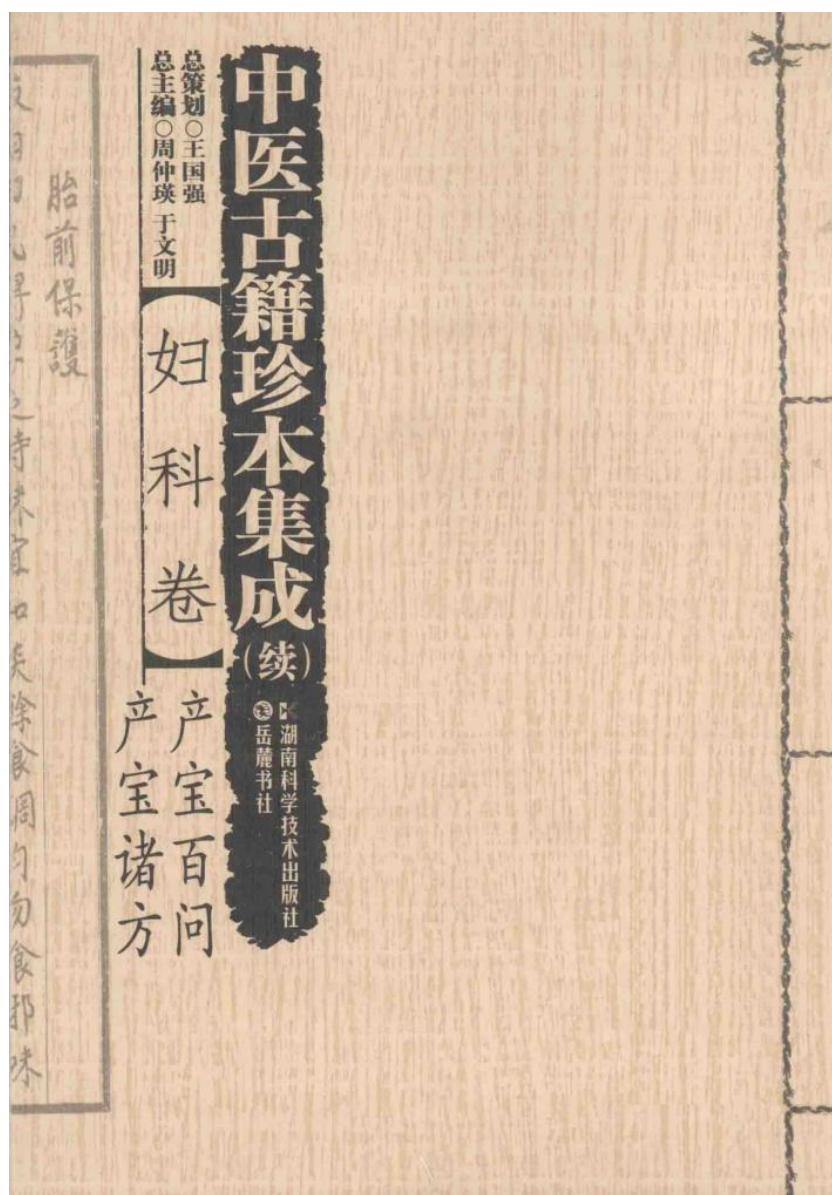 中医古籍珍本集成
(续)
湖南科学技术出版社
岳麓书社
总策划○王国强
总主编○周仲瑛 于文明
【妇科卷】
产宝百问
产宝诸方
胎前保護
之時味宜
食調匀勿食邪味